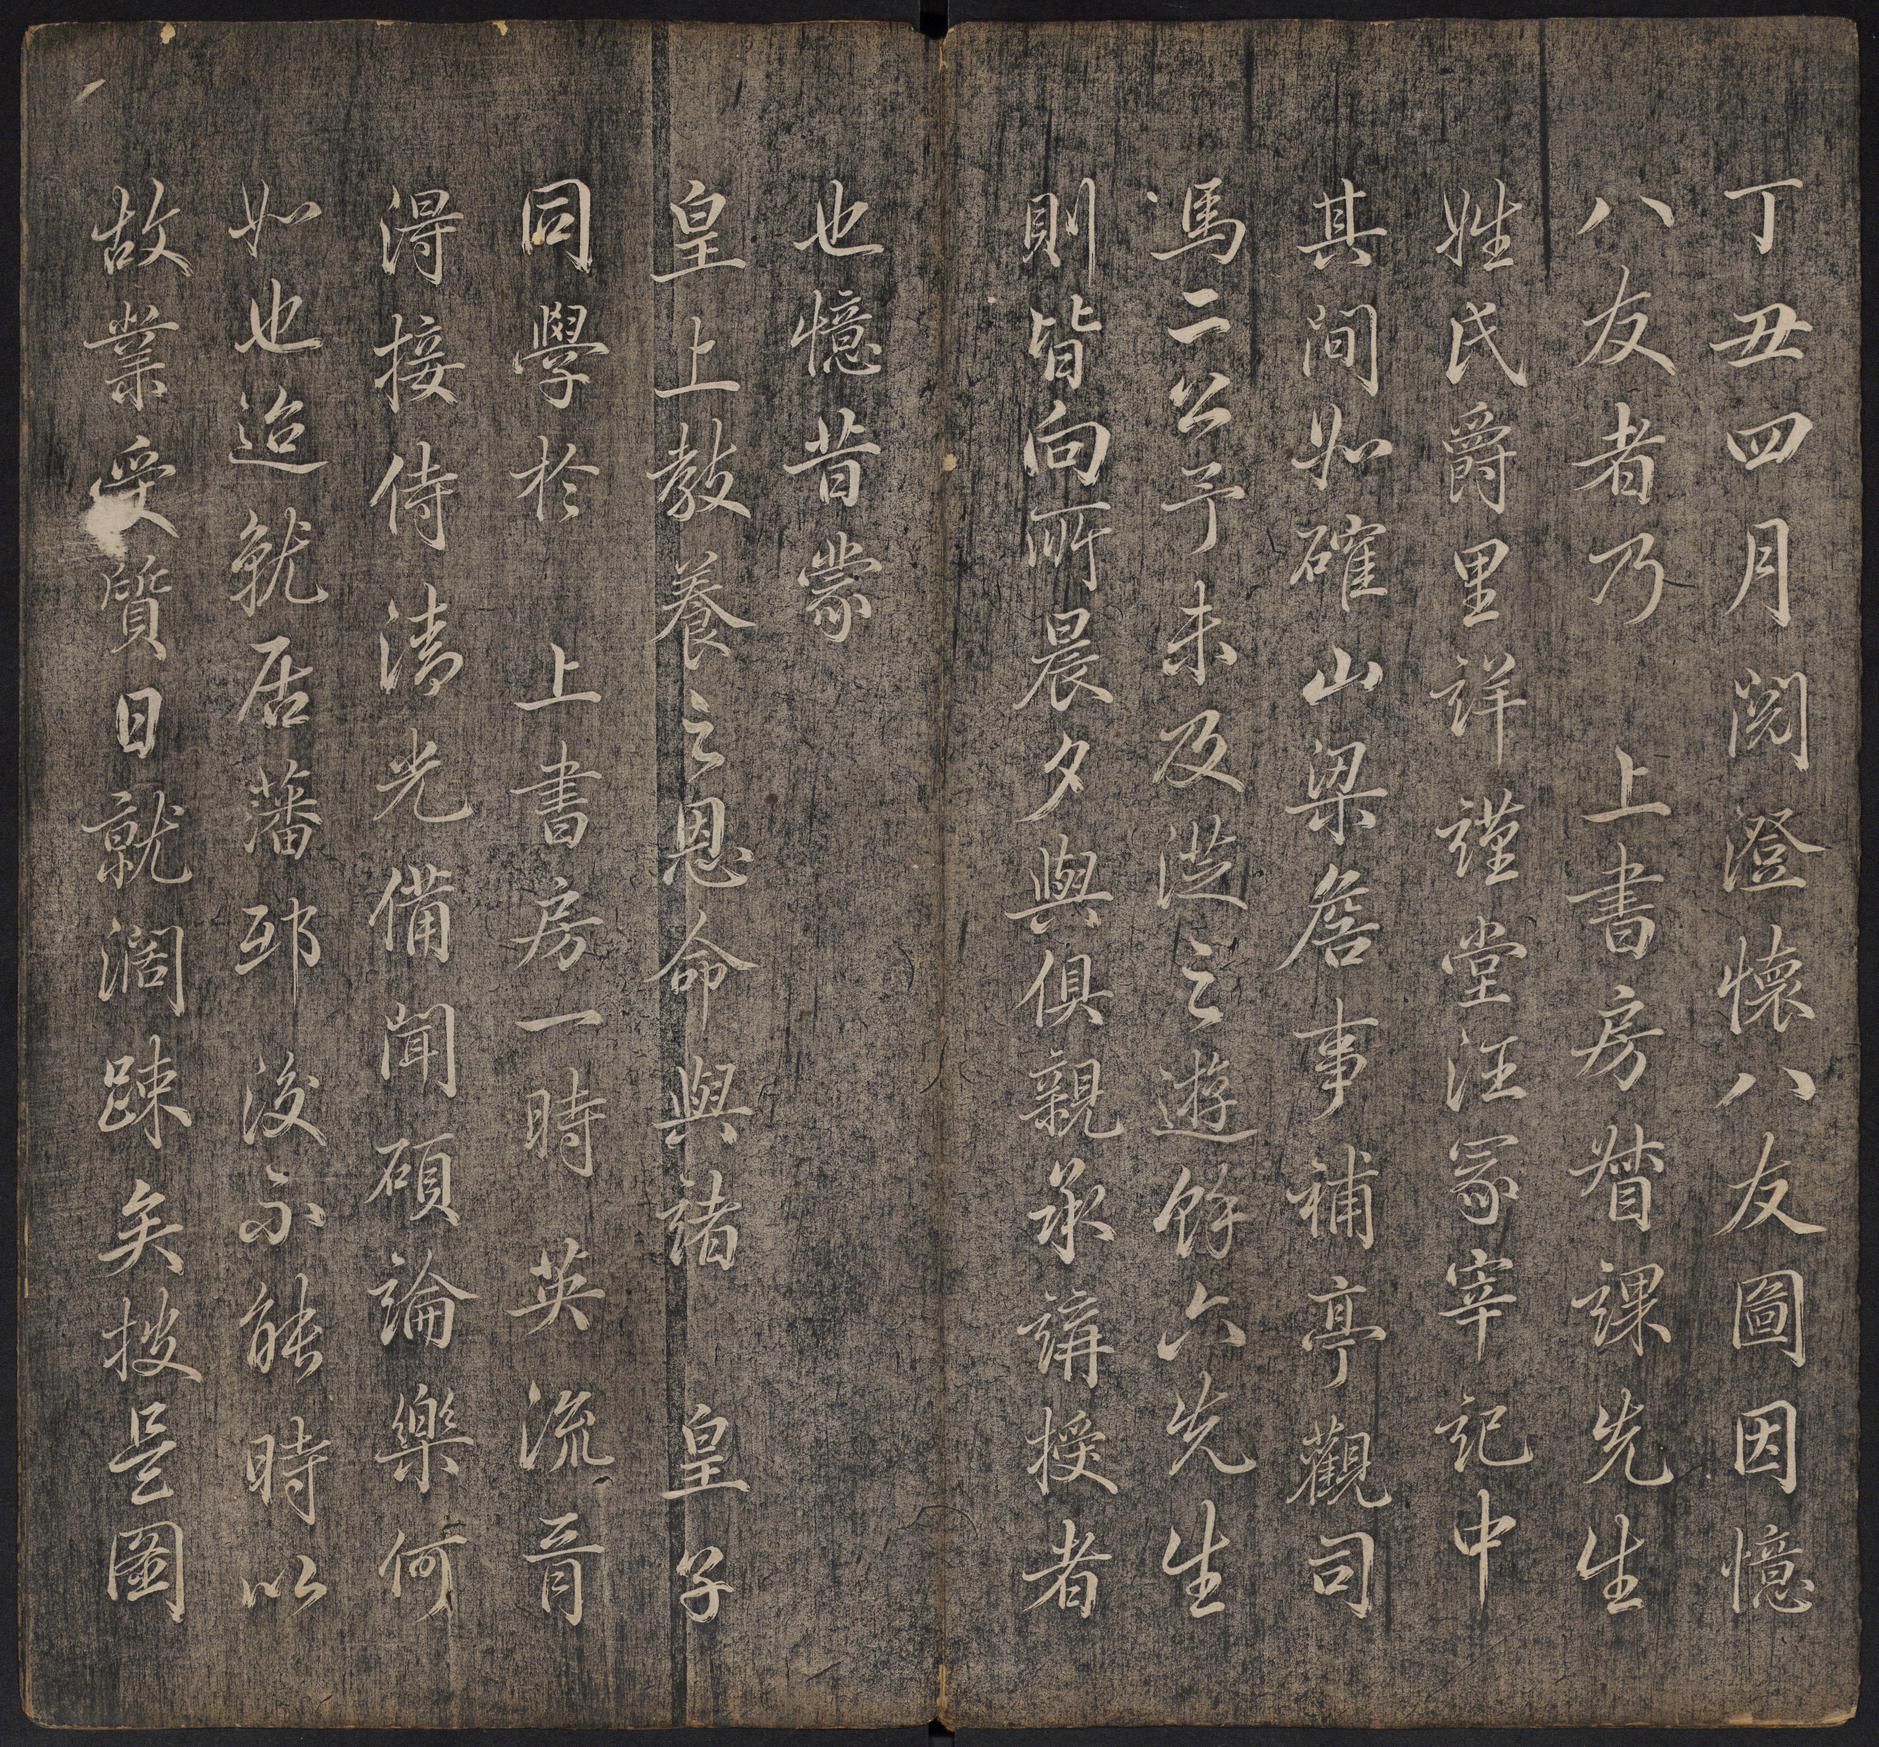 丁丑四月閱澄懷八友圖因憶
八友者乃 上書房督課先生
姓氏爵里詳謹堂汪冢宰記中
其間如確山梁詹事補亭觀司
馮二公予未及從之遊餘六先生
則皆向所晨夕與俱親承講授者
也憶昔蒙
皇上教養之恩命與諸 皇子
同學於 上書房一時英流胥
得接侍清光備聞碩論樂何
如也迨就居藩邸後不能時以
故業受質日就濶踈矣披是圖